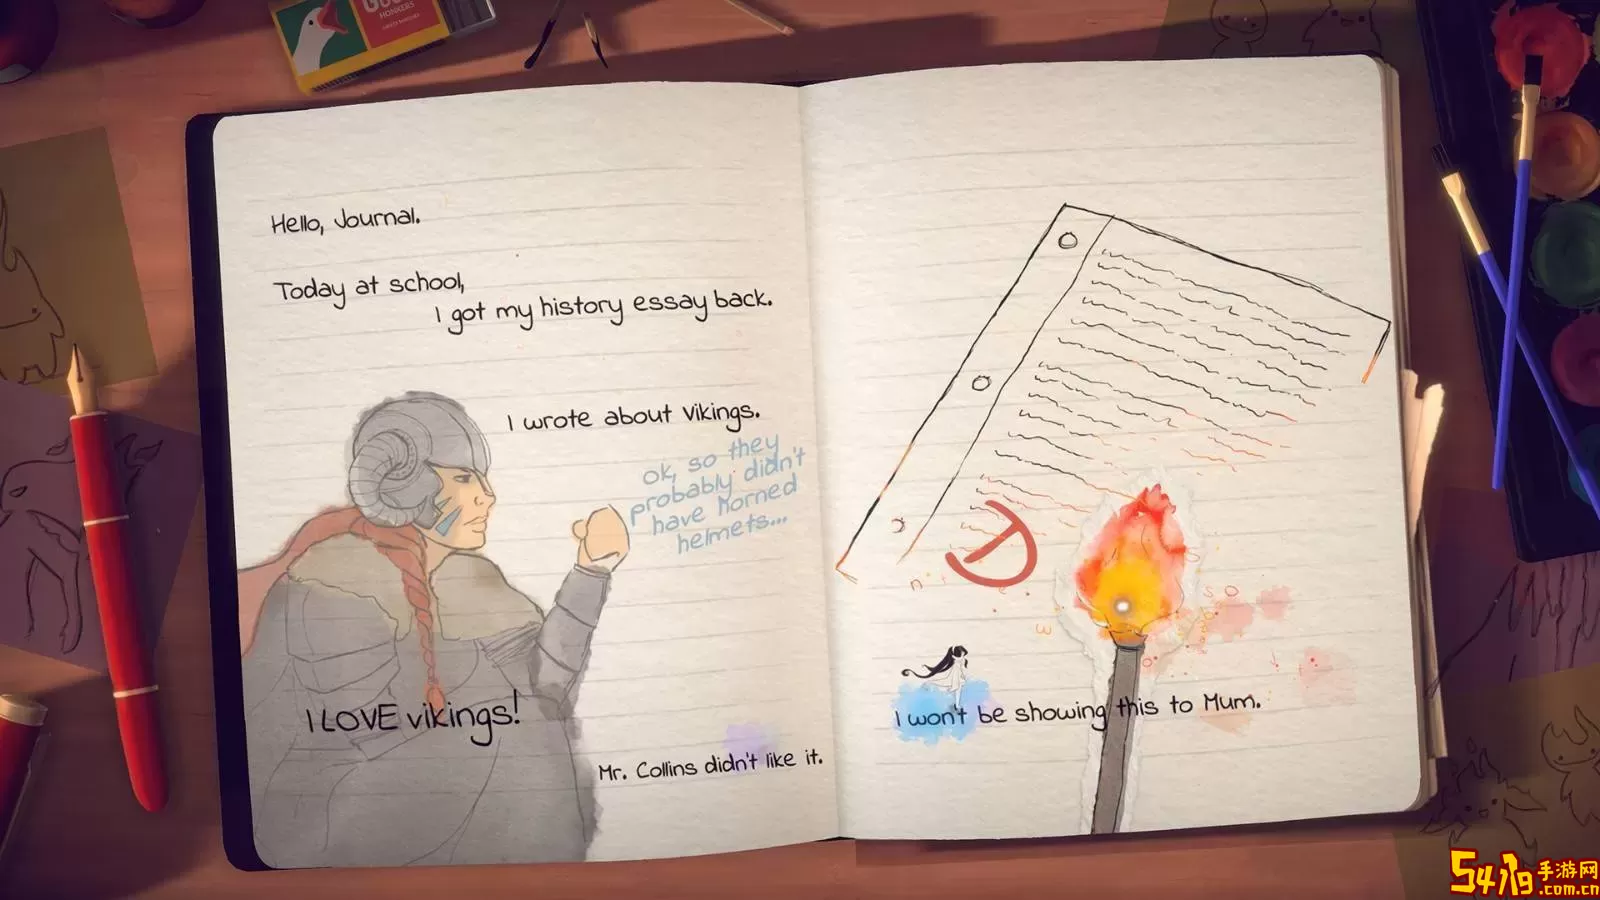 HONKERS
Hello, Journal.
Today at school,
I got my history essay back.
I wrote about vikings.
ok, so they
probably didn't
have horned
helmets...
I LOVE vikings!
Mr. Collins didn't like it.
D
I won't be showing this to Mum.
5417g手游网
.com.cn